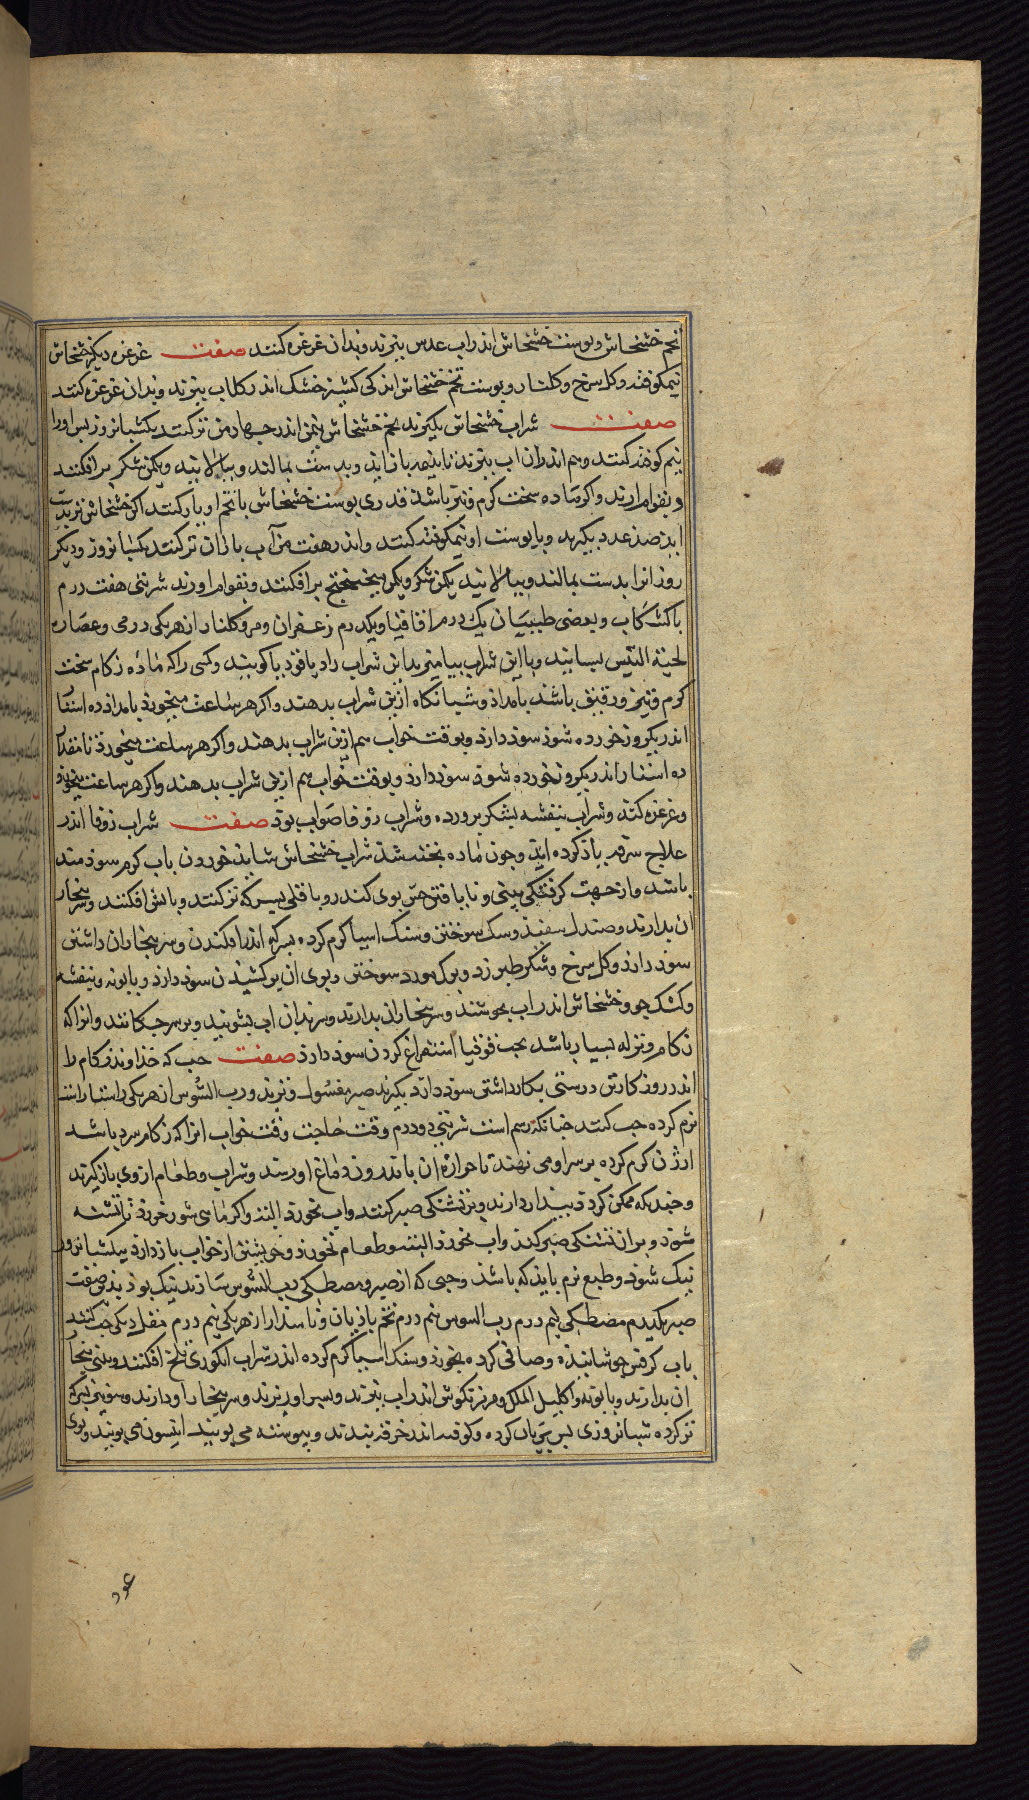 تخم خشخاش و پوست خشخاش اندر اب عدس بپزند و بدان غرغره کنند صفت غرغره دیگر خشخاش
نیم کوفته و کل سرخ و کلنار و پوست تخم خشخاش اندکی کشنیز خشک اندر کلاب بپزند و بدان غرغره کنند
صفت شراب خشخاش بکیرند تخم خشخاش نیم من اندر چهار من تر کنند یکشبانروز پس او را
نیم کوفته کنند و هم اندران اب بپزند تا بنیمه باز اید و بدست بمالند و بپالایند ویکمن شکر برافکنند
و بقوام ارند و اکر ماده سخت کرم و تیز باشد قدری پوست خشخاش با تخم او یار کنند اکر خشخاش تر بدست
اید صد عدد بکیرند و با پوست او نیم کوفته کنند و اندر هفت من آب باران تر کنند یکشبانروز و دیکر
روز انرا بدست بمالند و بپالایند یکمن شکر ویکمن میبختج برافکنند و بقوام اورند شربتی هفت درم
با کشکاب و بعضی طبیبان یک درم اقاقیا و یکدرم زعفران و مر و کلنار از هر یکی درمی و عصاره
لحیة التیس بسایند و با این شراب بیامیزند این شراب را دیاقوذ با کویند و کسی را که ماده زکام سخت
کرم و تیز و رقیق باشد بامداد و شبانکاه ازین شراب بدهند و اکر هر ساعت میخورد بامداد ده استار
اندر یکروز خورده شود سود دارد و بوقت خواب هم ازین شراب بدهند و اکر هر ساعت میخورد تا مقدار
ده استار اندر یکروز خورده شود سود دارد و بوقت خواب هم ازین شراب بدهند و اکر هر ساعت میخورد
و غرغره کند و شراب بنفشه بشکر پرورده و شراب زوفا صواب بود صفت شراب زوفا اندر
علاج سرفه یاد کرده اید و چون ماده پخته شد شراب خشخاش شاید خوردن باب کرم سودمند
باشد و از جهت کرفتکی بینی و نایافتن حس بوی کندر و باقلی بسرکه تر کنند و باتش افکنند و سر ببخار
ان بدارند و صندل سفید و سک سوختن و سنک اسیا کرم کرده بسرکه اندر افکندن و سر ببخار ان داشتن
سود دارد و کل سرخ و شکر طبرزد و برک مورد سوختن و بوی ان بو کشیدن سود دارد و بابونه و بنفشه
و کشک جو و خشخاش اندر اب بجوشند و سر ببخار ان بدارند و سر بدان اب بشویند و بر سر چکانند و انرا که
زکام و نزله بسیار باشد بحب قوقیا استفراغ کردن سود دارد صفت حب که خداوند زکام را
اندر روزکار تن درستی بکار داشتن سود دارد بکیرند صبر مغسول و تربد و رب السوس از هر یکی راستاراست
نرم کرده حب کنند چنانکه رسم است شربتی دو درم وقت حاجت وقت خواب انرا که زکام سرد باشد
ارزن کرم کرده بر سر او می نهند تا حرارة ان باندرون دماغ او رسد و شراب و طعام از وی باز کیرند
و چندانکه ممکن کردد بیدار دارند و بر تشنکی صبر کند و اب نخورد البته و اکر ماهی شور خورد تا تشنه
شود و بر ان تشنکی صبر کند و اب نخورد البته و طعام نخورد و خویشتن از خواب باز دارد یکشبانروز
نیک شود و طبع نرم باید که باشد و حبی که از صبر و مصطکی و رب السوس سازند نیک بود بدین صفت
صبر یکدرم مصطکی نیم درم رب السوس نیم درم تخم بادیان و ناسدارا از هر یکی نیم درم مقل دیکی حب کنند
باب کرفس جوشانیده و صافی کرده بخورد و سنک اسیا کرم کرده اندر شراب انکوری تلخ افکنند و بینی ببخار
ان بدارند و بابونه و اکلیل الملک و مرزنکوش اندر اب بپزند و بسر او ریزند و سر ببخار او دارند و شونیز بسرکه
تر کرده شبانروزی پس بریان کرده و کوفته اندر خرقه بندند و پیوسته می بویند انیسون می بویند و بوی
عود